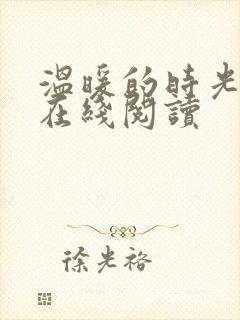 温暖的時光
在綫閱讀
徐光裕